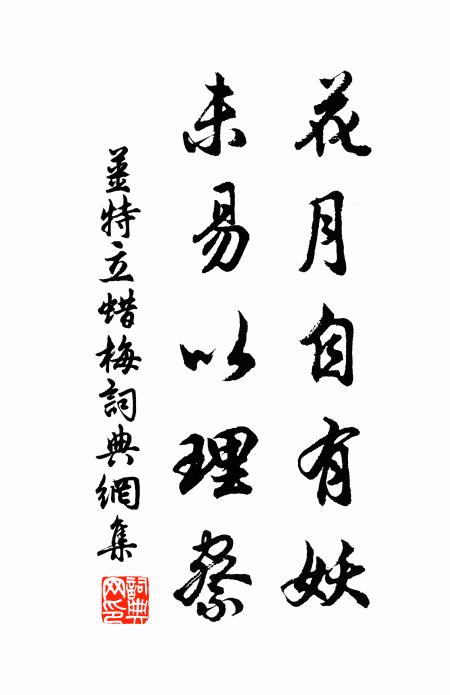 花月自有妖
未易以理察
姜特立蜡梅詞典網集
詞典網印